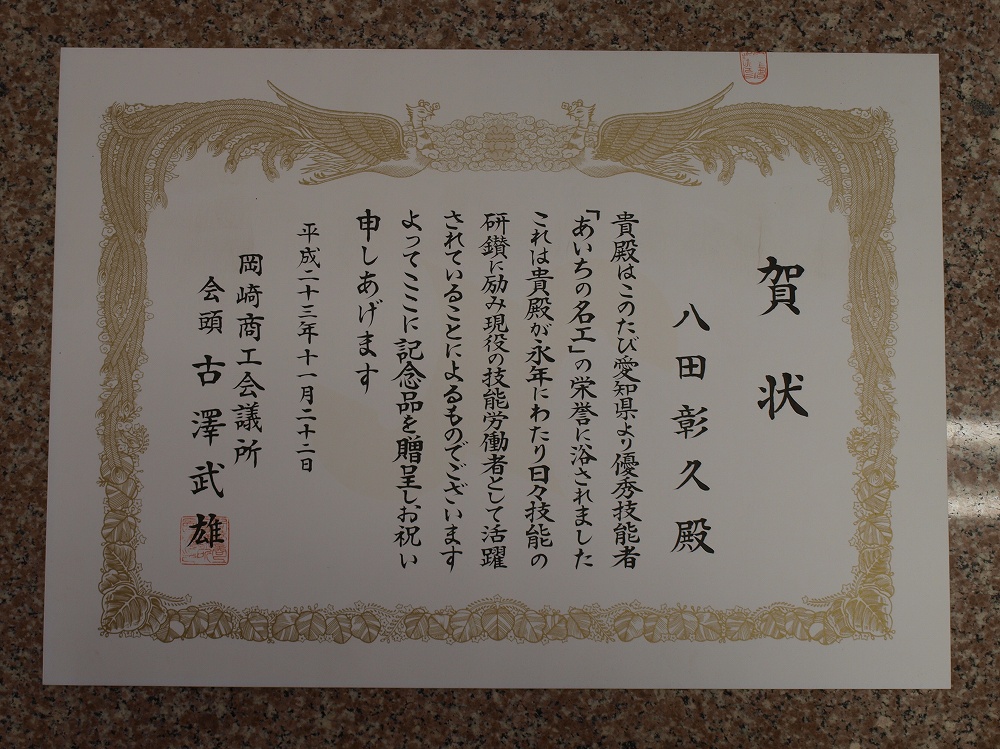 賀状
八田彰久殿
貴殿はこのたび愛知県より優秀技能者
「あいちの名工」の栄誉に浴されました
これは貴殿が永年にわたり日々技能の
研鑚に励み現役の技能労働者として活躍
されていることによるものでございます
よってここに記念品を贈呈しお祝い
申しあげます
平成二十三年十一月二十二日
岡崎商工会議所
会頭 古澤武雄